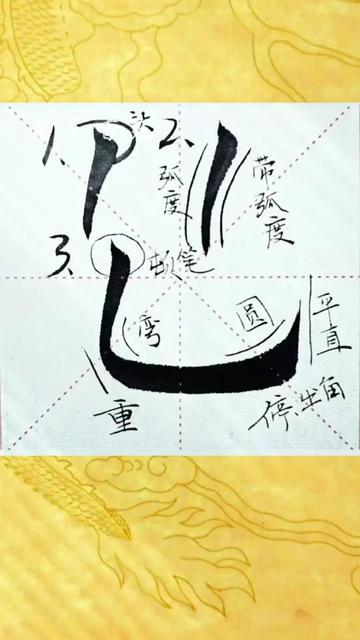 1. 头
2. 弧度 带弧度
3. 顿笔
弯 圆 平直
重 停出角